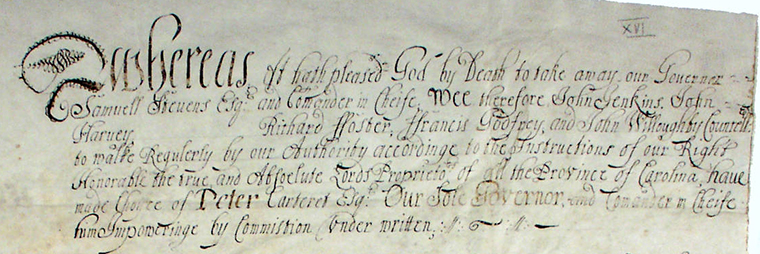 XVI
Whereas, itt hath pleased God by Death to take away our Governor
Samuell Stevens Esqr and Comander in Cheife, Wee therefore John Jenkins, John
Harvey Richard ffoster, ffrancis Godfrey, and John Willoughby Councell:
to walke Regulerly by our Authority accordinge to the Instructions of our Right
Honorable the true, and Absolute Lords Proprietors of all the Province of Carolina, have
made Choice of Peter Carteret Esqr Our Sole Governor, and Comander in Cheife
him Impoweringe by Commission Under written;